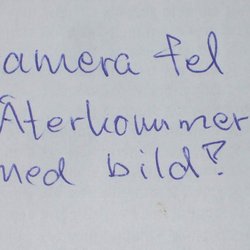 amera fel
Återkommer
med bild?